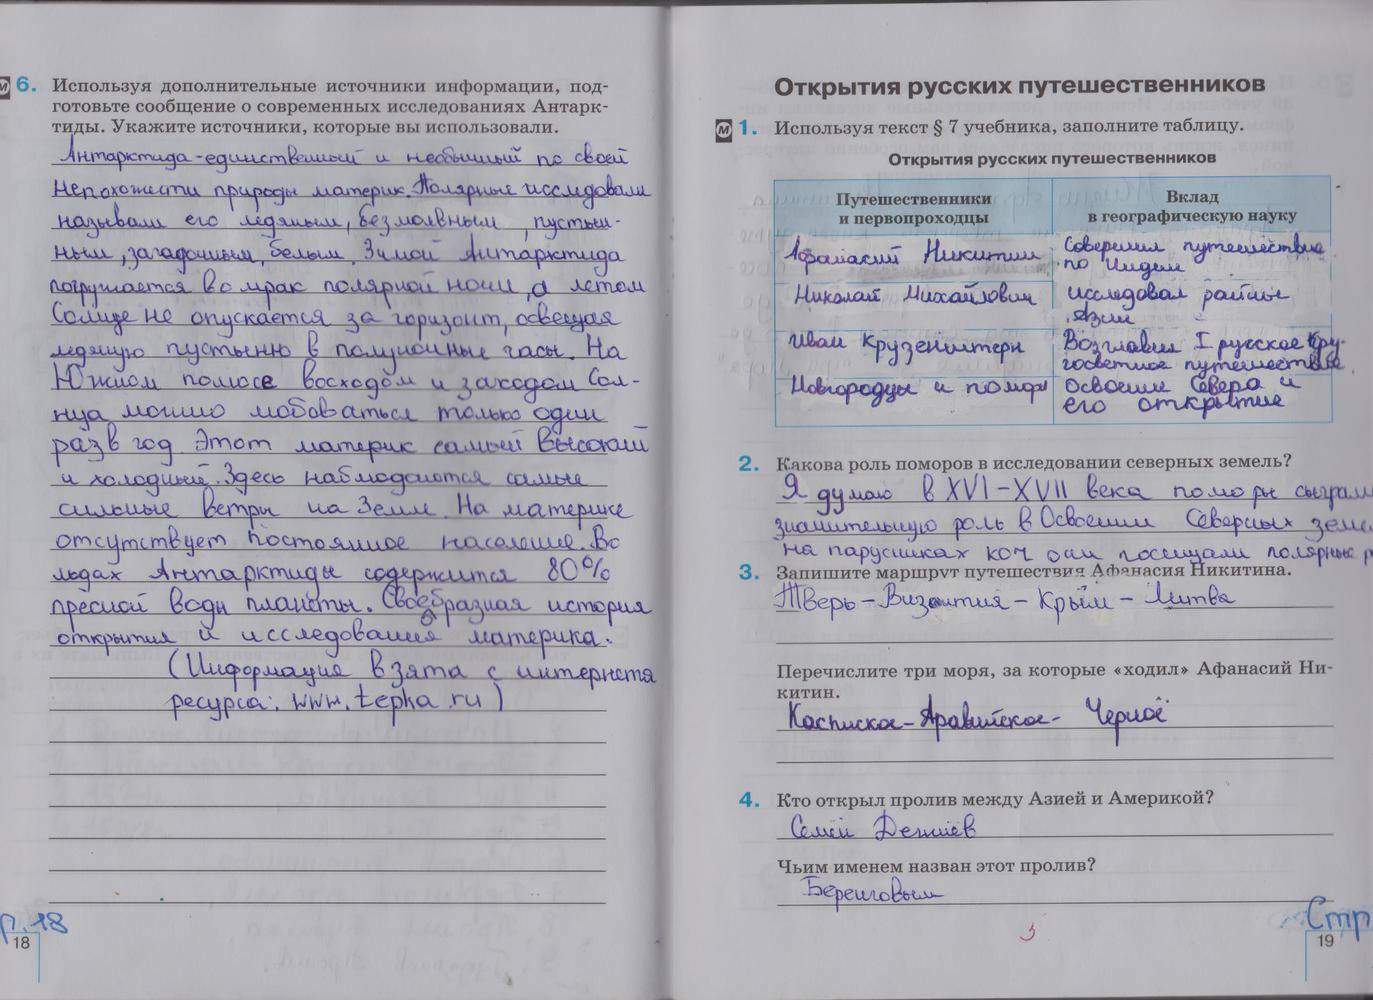 м 6. Используя дополнительные источники информации, под-
готовьте сообщение о современных исследованиях Антарк-
тиды. Укажите источники, которые вы использовали.
Антарктида-единственный и необычный по своей
непохожести природы материк. Полярные исследовали
называли его ледяным, безмолвным, пустын-
ным, загадочным, белым. Зимой Антарктида
погружается во мрак полярной ночи, а летом
Солнце не опускается за горизонт, освещая
ледяную пустынню в полуночные часы. На
Южном полюсе восходом и заходом Сол-
нца можно любоваться только один
раз в год. Этот материк самый высокий
и холодный. Здесь наблюдаются самые
сильные ветры на Земли. На материке
отсутствует постоянное население. Во
льдах Антарктиды содержится 80%
пресной воды планеты. Своеобразная история
открытия и исследования материка.
(Информация взята с интернета
ресурса: www.tepka.ru)
р. 18
18
Открытия русских путешественников
м 1. Используя текст § 7 учебника, заполните таблицу.
Открытия русских путешественников
Путешественники Вклад
и первопроходцы в географическую науку
Афанасий Никитин Совершил путешествие
по Индии
Николай Михайлович исследовал районы
Азии
Иван Крузенштерн Возглавил I русское кру-
госветное путешествие.
Новгородцы и поморы Освоение Севера и
его открытие
2. Какова роль поморов в исследовании северных земель?
Я думаю в XVI-XVII века поморы сыграли
значительную роль в Освоении Северных
на парусниках коч они посещали полярные
3. Запишите маршрут путешествия Афанасия Никитина.
Тверь-Византия-Крым-Литва
Перечислите три моря, за которые «ходил» Афанасий Ни-
китин.
Каспиское-Аравийское- Черное
4. Кто открыл пролив между Азией и Америкой?
Семён Дежнёв
Чьим именем назван этот пролив?
Беринговым
Стр
19